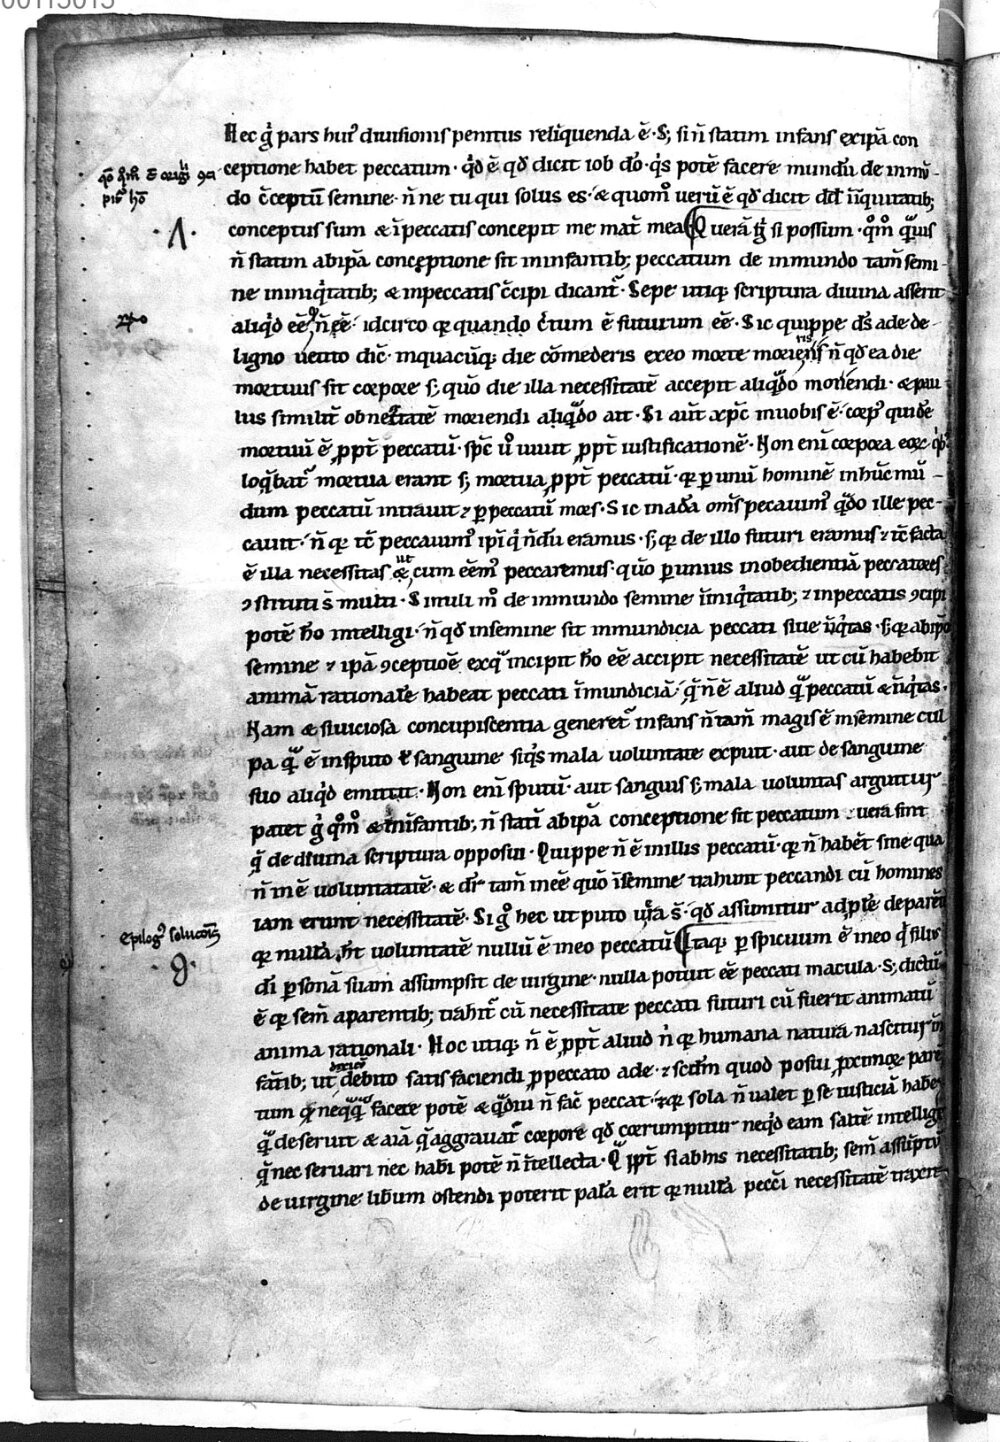 00115015
Hec g̊ pars hui᾽ diuisionis penitus reliquenda ē · S; si ñ statim infans ex ip̄a con
ceptione habet peccatum · qd̓ ē qd̓ dicit iob d̄o · q̓s potē facere mundū de inmū-
do c̄ceptū semine · ñ ne tu qui solus es · & quom° uerū ē qd̓ dicit dd̄ in iniquitatib;
conceptus sum & ī peccatis concepit me mat̄ mea
si possum · qm̊ quis
ñ statim ab ip̄a conceptione sit in infantib; peccatum de inmundo tam̄ semi-
ne in iniq̓tatib; & in peccatis c̄cipi dicant̄ · Sepe utiq; scriptura diuina asserit
aliq̓d eē ñ eē · idcirco qꝛ quando c̓tum ē futurum eē · Sic quippe d̄s ade de
ligno uetito dic̄ · in quacūq; die cōmederis ex eo morte morieris ñ qd̓ ea die
mortuus sit corpore s; quo die illa necessitatē accepit aliq̄do moriendi · & pau
lus similit̄ ob necitatē moriendi aliq̄do ait · Si aūt xp̄c in uobis ē · corp᾽ quidē
mortuū ē ꝓpt̄ peccatū · sp̄c ū uiuit ꝓpt̄ iustificationē · Non enī corpora eorꝛ qb᾽
loq̄bat̄ mortua erant s; mortua ꝓpt̄ peccatū · qꝛ p̱ unū hominē in hūc mū-
dum peccatū intrauit ⁊ p̱ peccatū mors · Sic in adā om̄s peccauim᾽ q̄do ille pec-
cauit · ñ qꝛ tc̄ peccauim᾽ ip̄i q̓ ñdū eramus · s; qꝛ de illo futuri eramus ⁊ tc̄ facta
ē illa necessitas ut cum eēm᾽ peccaremus · quō p̱ unius inobedientiā peccatores
ↄstituti s̄ multi · Simili m° de inmundo semine ī iniq̓tatib; ⁊ in peccatis ↄcipi
potē hō intelligi · ñ qd̓ in semine sit inmundicia peccati siue iniq̓tas · s; qꝛ ab ip̄o
semine ⁊ ip̄a ↄceptioē ex qua incipit hō eē accipit necessitatē ut cū habebit
animā rationalē habeat peccati īmundiciā · q̄ ñ ē aliud q̄ peccatū & iniq̓tas ·
Nam & si uiciosa concupiscentia generet᾽ infans ñ tam̄ magis ē in semine cul
pa q̄ ē in sputo ł sanguine siq̓s mala uoluntate expuit · aut de sanguine
suo aliq̓d emittit · Non enī sputū · aut sanguis s; mala uoluntas arguitur
patet g̊ qm̊ & in infantib; ñ statī ab ip̄a conceptione sit peccatum · uera sint
q̄ de diuina scriptura opposui · Quippe ñ ē in illis peccatū · qꝛ ñ habēt sine qua
ñ in ē uoluntatē · & dr̄ tam̄ in eē quō ī semine trahunt peccandi cū homines
iam erunt necessitatē · Si g̊ hec ut puto uera s̄ · qd̓ assumitur ad ꝓlē de parēte
qꝛ nullā ht̄ uoluntatē nullū ē in eo peccatū Itaq; p̱spicuum ē in eo q̓ filius
dī p̱sonā suam assumpsit de uirgine · nulla potuit eē peccati macula · S; dictū
ē qꝛ sem̄ a parentib; trahit᾽ cū necessitate peccati futuri cū fuerit animatū
anima rationali · Hoc utiq; ñ ē ꝓpt̄ aliud ñ qꝛ humana natura nascitur in
fātib; ut dixi cū debito satisfaciendi ꝓ peccato ade · ⁊ scdm̄ quod posui ꝓximoꝝ parē
tum facere potē & q̄diu ñ fac̄ peccat · ⁊ qꝛ sola ñ ualet p̱ se iusticiā habē
q̄ deseruit & aīa q̄ aggrauat᾽ corpore qd̓ corrumpitur neq̓d eam saltē intellige
q̄ nec seruari nec habi potē ñ ītellecta · Q̄ ꝓpt̄ si ab his necessitatib; sem̄ assūptū
de uirgine libum ostendi poterit palā erit qꝛ nullā pecc̄i necessitatē traxit
· Λ ·
Epilog᾽ solucōis
· 9 ·